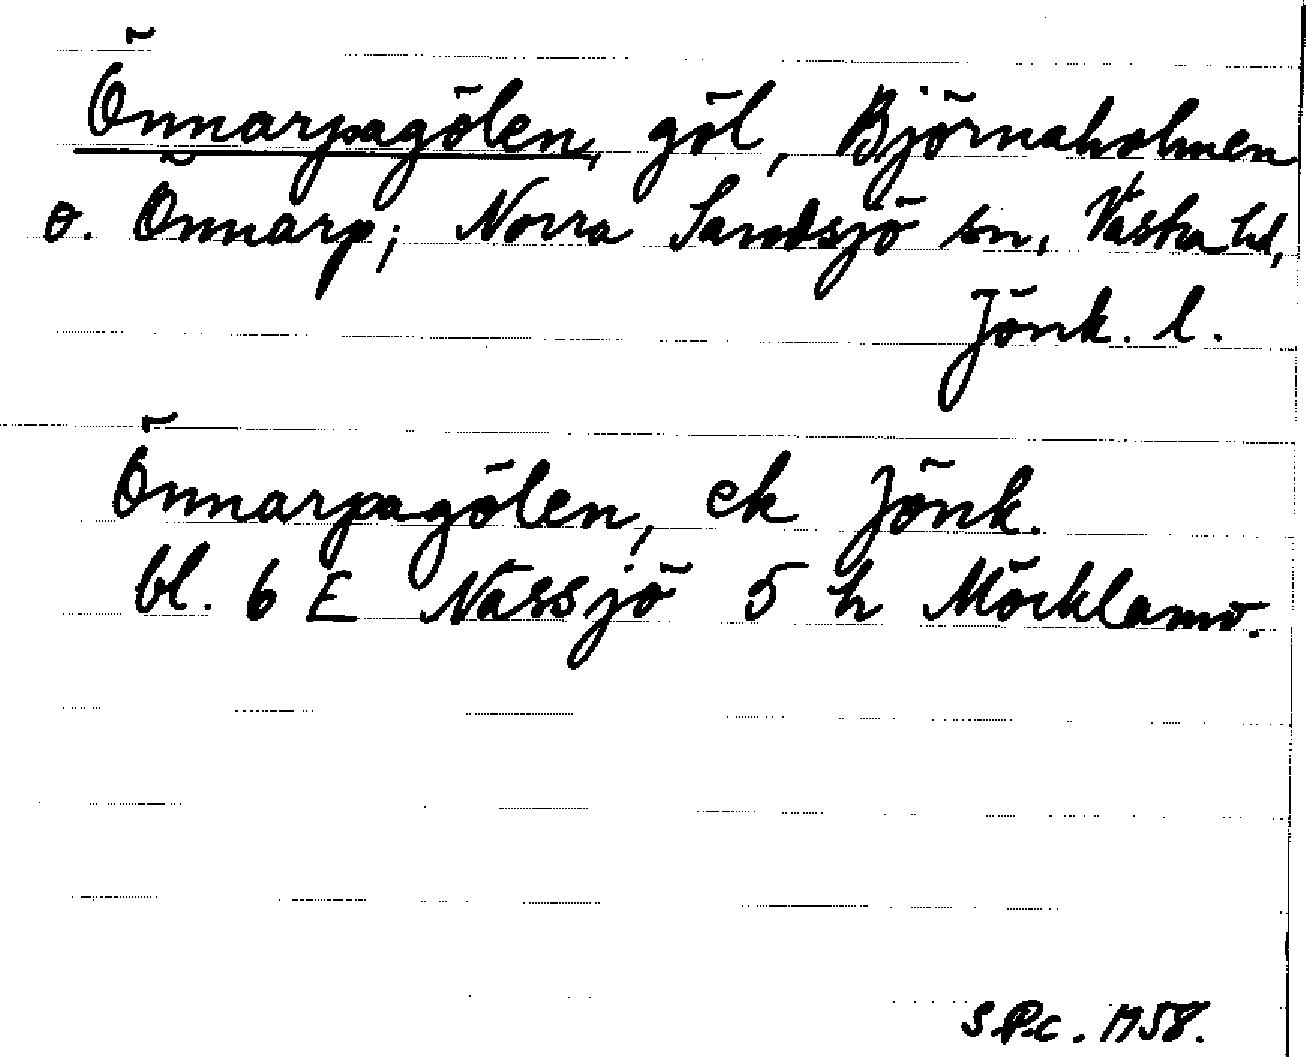 Önnarpagölen, göl, Björnaholmen
o. Önnarp; Norra Sandsjö sn, Västra hd,
Jönk. l.
Önnarpagölen, ek Jönk.
bl. 6 E Nässjö 5 h Möcklamo.
S.P.C. 1958.